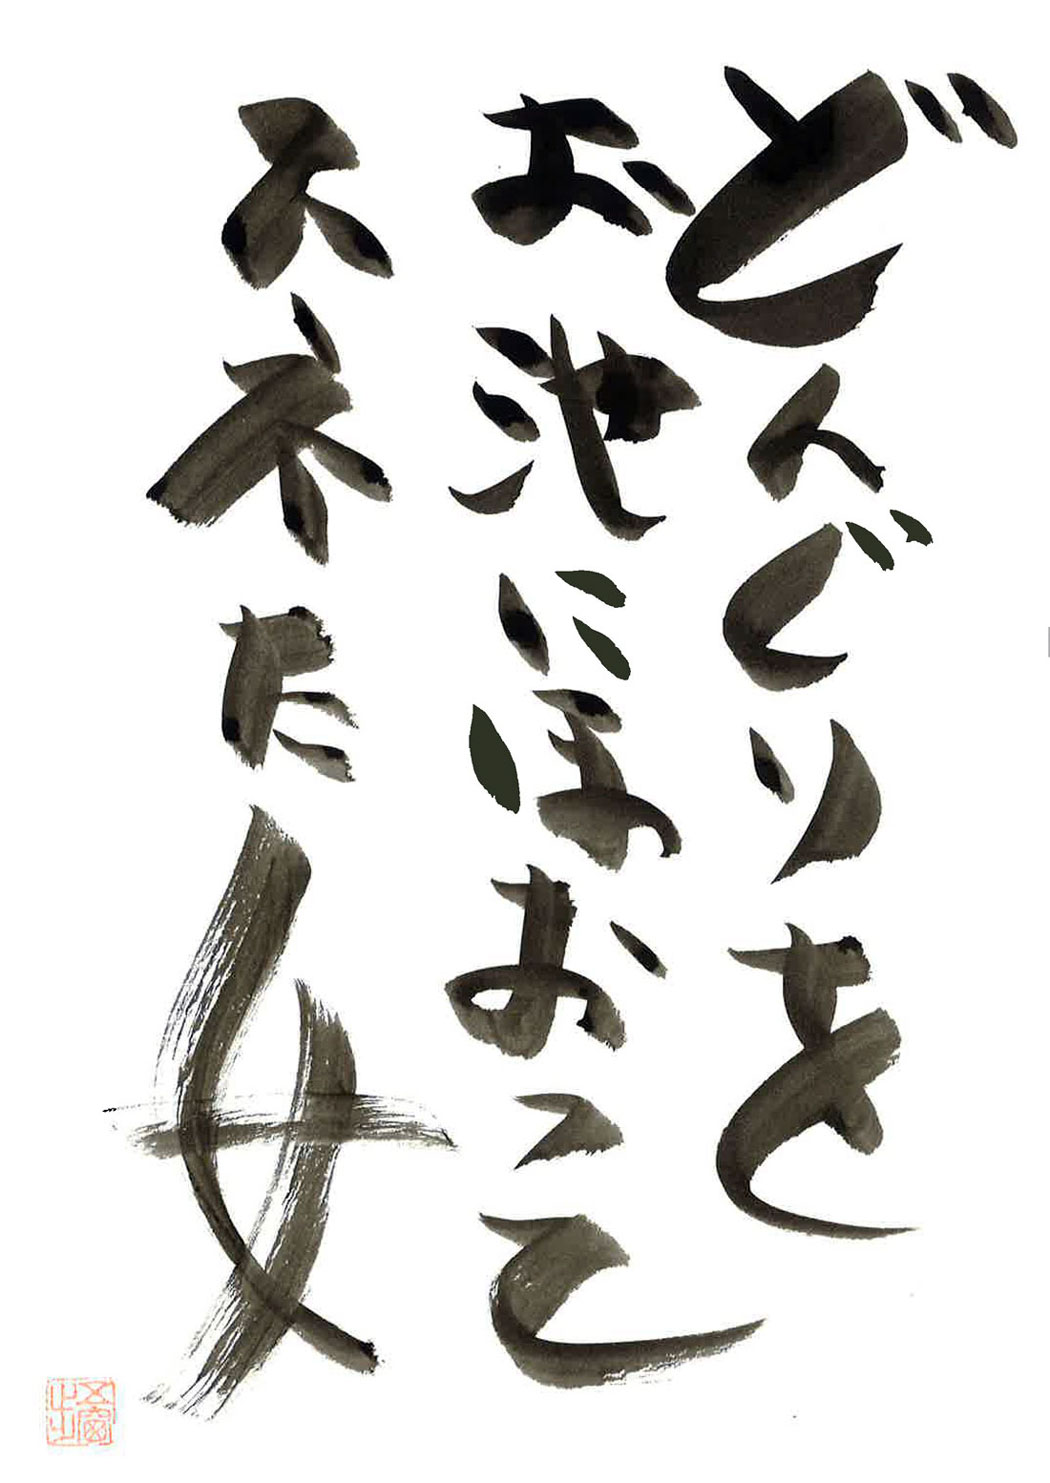 どんぐりを
お池にほおって
スネた女